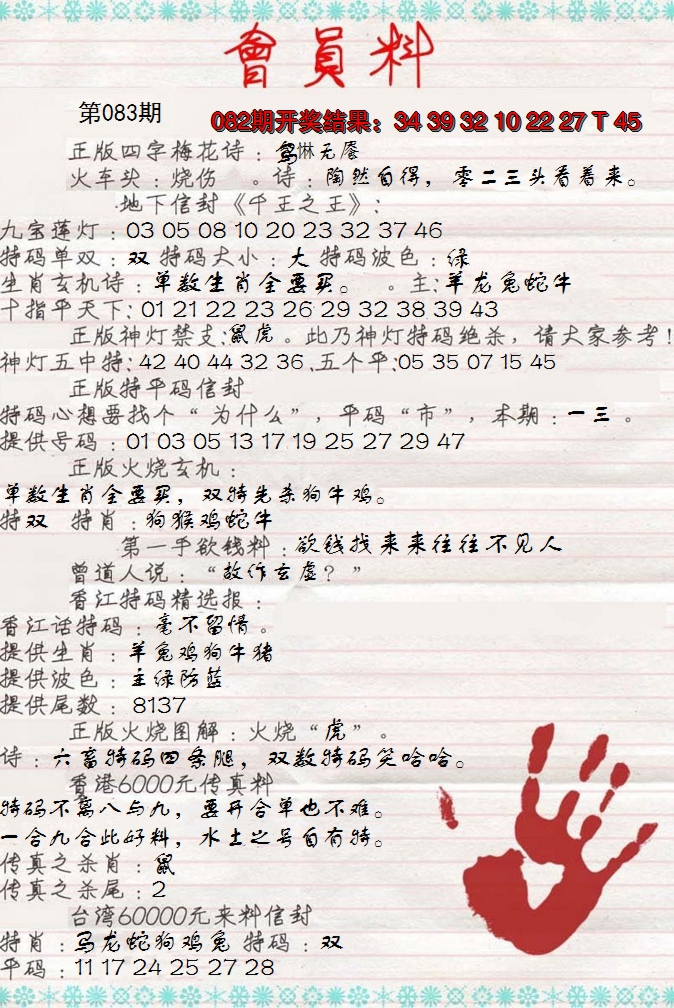 會員料
第083期
082期开奖结果：34 39 32 10 22 27 T 45
正版四字梅花诗：贪惏无餍
火车头：烧伤 。诗：陶然自得，零二三头看着来。
地下信封《千王之王》：
九宝莲灯：03 05 08 10 20 23 32 37 46
特码单双：双 特码大小：大 特码波色：绿
生肖玄机诗：单数生肖全要买。 。主：羊龙兔蛇牛
十指平天下：01 21 22 23 26 29 32 38 39 43
正版神灯禁支：鼠虎。此乃神灯特码绝杀，请大家参考！
神灯五中特：42 40 44 32 36．五个平：05 35 07 15 45
正版特平码信封
特码心想要找个“为什么”，平码“市”，本期：一三 。
提供号码：01 03 05 13 17 19 25 27 29 47
正版火烧玄机：
单数生肖全要买，双特先杀狗牛鸡。
特双 特肖：狗猴鸡蛇牛
第一手欲钱料：欲钱找来来往往不见人
曾道人说：“故作玄虚？”
香江特码精选报：
香江话特码：毫不留情。
提供生肖：羊兔鸡狗牛猪
提供波色：主绿防蓝
提供尾数：8137
正版火烧图解：火烧“虎”。
诗：六畜特码四条腿，双数特码笑哈哈。
香港6000元传真料
特码不离八与九，要开合单也不难。
一合九合此好料，水土之号自有特。
传真之杀肖：鼠
传真之杀尾：2
台湾60000元来料信封
特肖：马龙蛇狗鸡兔 特码：双
平码：11 17 24 25 27 28